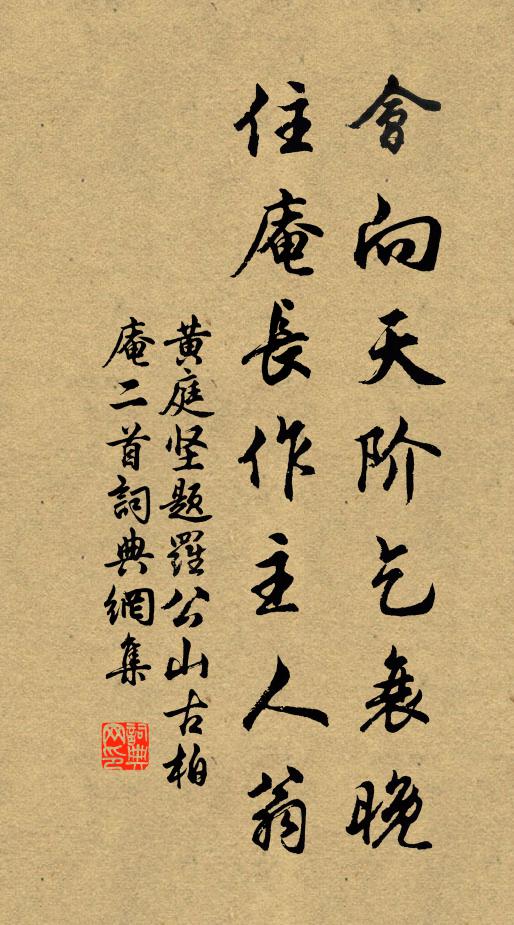 會向天阶乞衰晚
住庵長作主人翁
黄庭坚題羅公山古柏
庵二首詞典網集
詞典網印